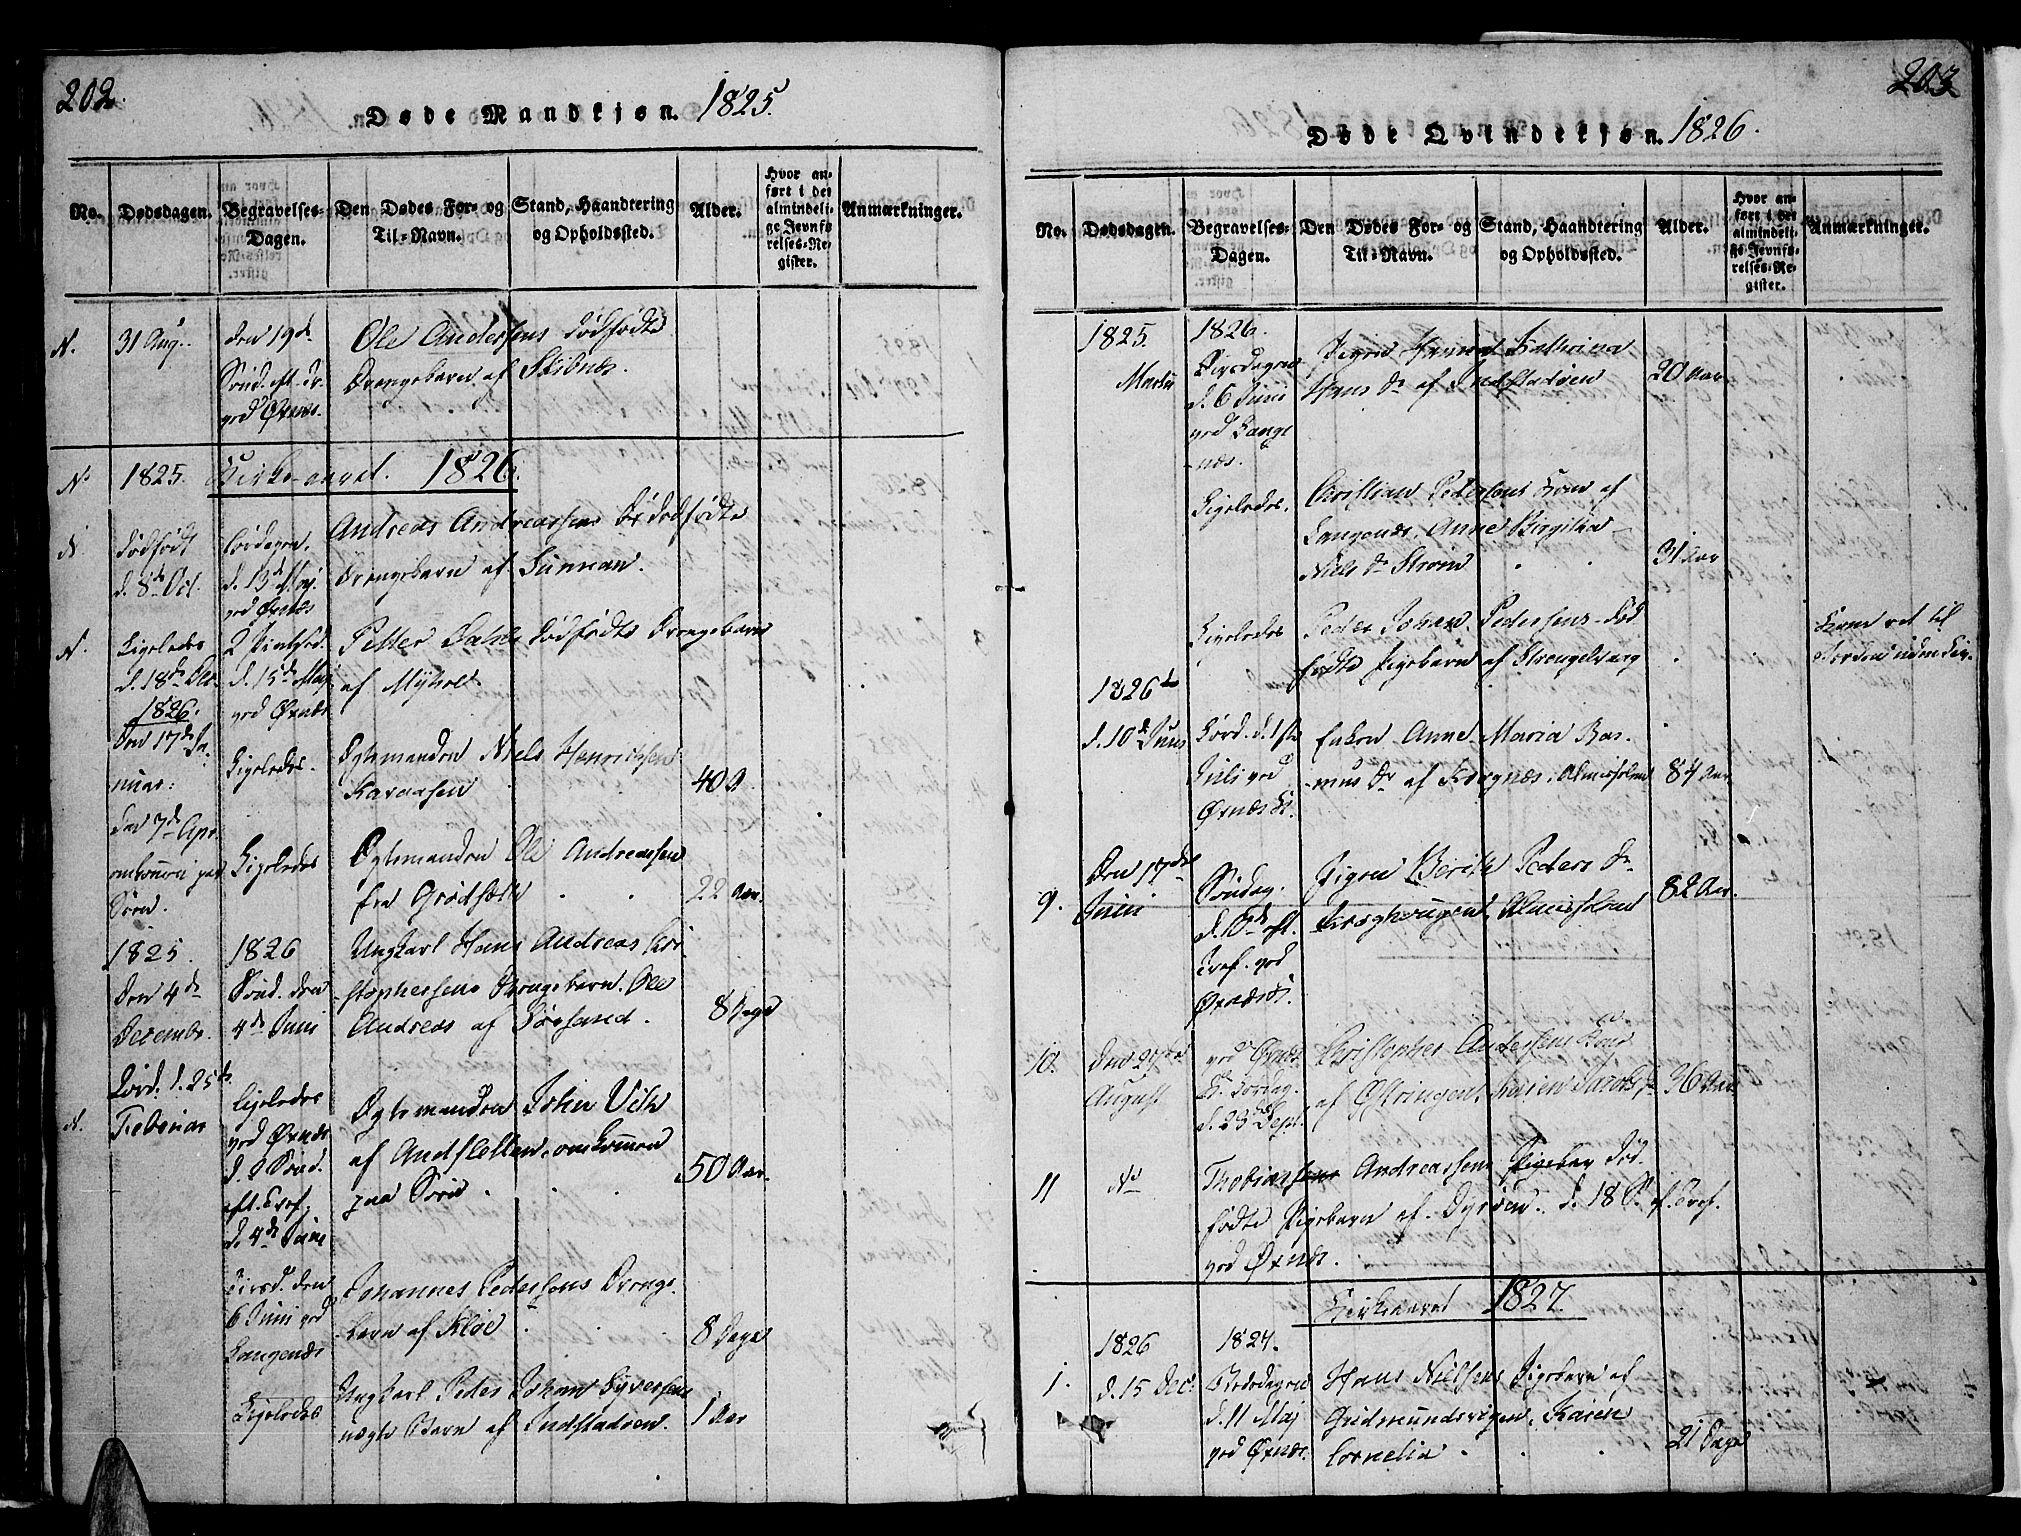 202.
Døde Mandkjøn. 1825.
No.
Dødsdagen.
Begravelses-
Dagen.
Den Dødes For- og
Til-Navn.
Stand, Haandtering
og Opholdssted.
Alder.
Hvor an-
ført i det
almindeli-
ge Jevnfø-
relses-Re-
gister.
Anmærkninger.
N. 31 Aug.
den 19de
Sønd. eft. Tr.
ved Øxnæs.
Ole Andersens dødfødte
Drengebarn af Skibnæs.
N. 1825. Kirke-aaret. 1826.
N
dødfødt
d. 8de Oct.
Løverdagen.
d. 13de Maj.
ved Øxnæs
Andreas Andreassens dødfødte
Drengebarn af Tinnan.
N.
Ligeledes
d. 18de Dec.
2 Pintsed.
d. 15de Maj
ved Øxnæs
Petter dødfødte Drengebarn
af Myhol
1826.
Den 17de Ja-
nuar:
Ligeledes.
Ægtemanden Niels Henrichsen
40 A
den 7de Apr.
omkommen paa
Søen.
Ligeledes
Ægtemanden Ole Andreassen
fra
22 Aar.
1825.
Den 4de
December.
1826
Sønd. den
4de Juni
Ungkarl Hans Andreas Kri-
stophersens Drengebarn. Ole
Andreas af Sørsand.
8 Dage
N.
Lørd. d. 25de
Februar
ligeledes
ved Øxnæs
d. 2 Sønd.
eft. Tref.
d. 4de Juni
Ægtemanden John Vik
af omkommen
paa Søen.
50 Aar.
Tirsd. den
6 Juni ved
Langenæs
Johannes Pedersens Drenge-
barn af Kløe
8 Dage
Ligeledes
Ungkarl Peder Johan Syversens
uægte Barn af Indstadøen.
1 Aar
203
Døde Qvindekjøn. 1826.
No.
Dødsdagen.
Begravelses-
Dagen.
Den Dødes For- og
Til-Navn.
Stand, Haandtering
og Opholdssted.
Alder.
Hvor an-
ført i det
almindeli-
ge Jevnfø-
relses-Re-
gister.
Anmærkninger.
1825.
Martii
1826.
Tirsdagen
d. 6 Junii
ved Lange-
næs.
Pigen Hanna Cathrina
Hans dr af Indstadøen
20 Aar
Ligeledes.
Christian Pedersens Kone af
Langenæs, Anne Birgitha
Niels dr Strøm
31 Aar
Ligeledes
Peder Johan Pedersens død-
fødte Pigebarn af Strengelvaag
1826
d. 10de Juni
Lørd. d. 1ste
Juli ved
Øxnæs K.
Enken Anne Maria Ras-
mus dr af Kragnæs. Almisselem
84 Aar
9.
Den 17de
Junii
Søndag.
d.
Tref. ved
Øxnæs K.
Pigen Berith Peders dr
Almisselem
82 Aar.
10.
Den 27de
August
ved Øxnæs
K. Lørdag.
d. 23 Sept.
Christopher Andersens Kone
af Østringen, Karen Jacobs dr
36 Aar
11
Thobias Andreassens død-
fødte Pigebarn af Dyrøen. d. 18 S. af Tref.
ved Øxnæs.
Kirkeaaret 1827.
1.
1826
d. 15 Dec:
1827.
Bededagen
d. 11 Maj
ved Øxnæs.
Hans Nielsens Pigebarn af
Gudmundsvigen, Karen
Cornelia
21 Dage